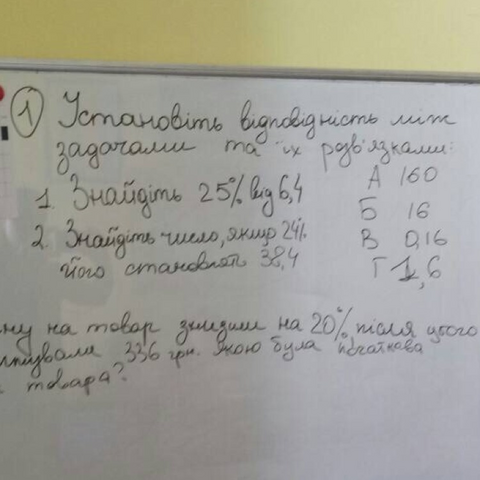 1 Установіть відповідність між
задачами та їх розв'язками:
1. Знайдіть 25% від 6,4
А 160
Б 16
2. Знайдіть число, якщо 24%
його становлять 38,4
В 0,16
Г 1,6
ну на товар знизили на 20% після цього
336 грн. Якою була початкова
товара?